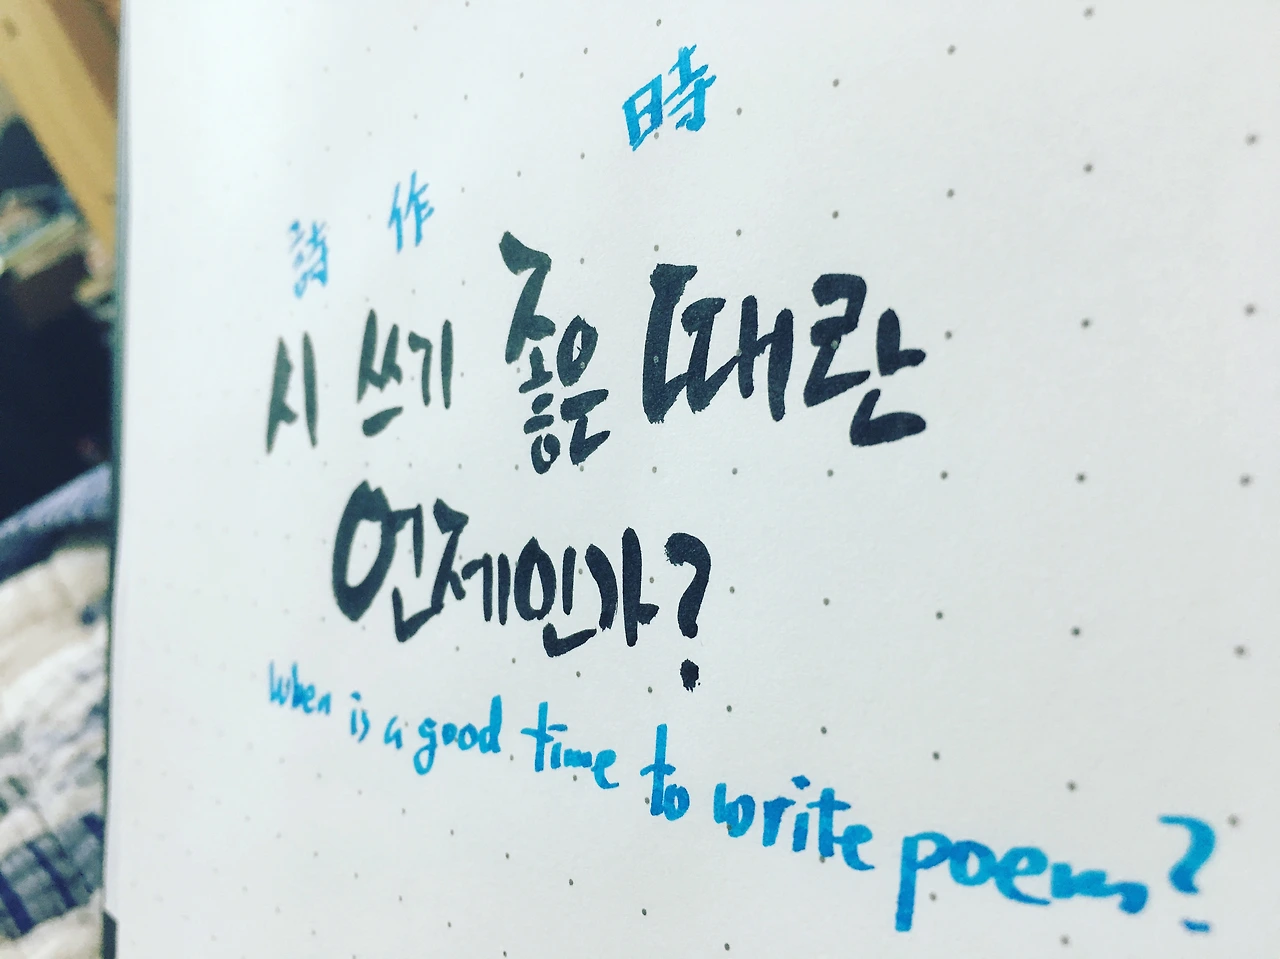 時
詩 作
시 쓰기 좋은 때란
언제인가?
When is a good time to write poem?